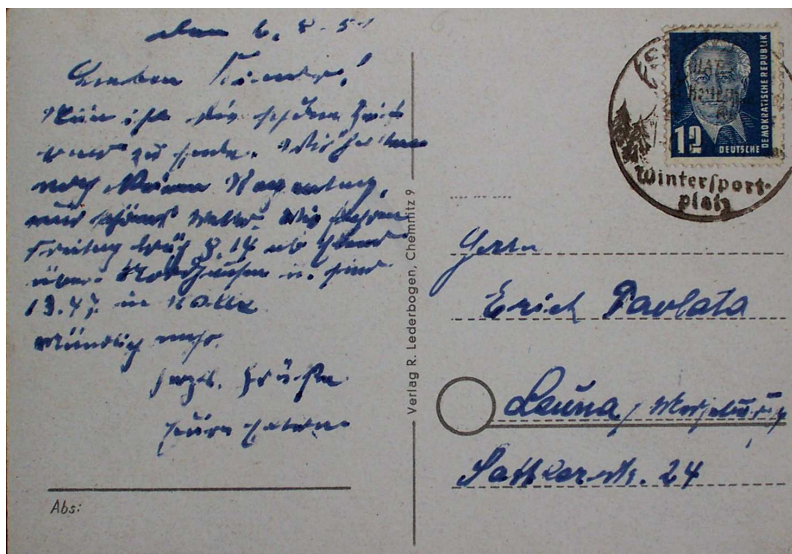 den 6. 8. 51
Lieben Kinder!
Nun ist die schöne Zeit
zu Ende. Wir hatten
noch keinen Regentag,
nur schönes Wetter. Wir fahren
Freitag früh 8.14 ab
über Nordhausen u. sind
13.47 in Halle.
Mündlich mehr.
herzl. Grüße
Eure Eltern
Abs:
Verlag R. Lederbogen, Chemnitz 9
12
DEUTSCHE
DEMOKRATISCHE REPUBLIK
Wintersport-
platz
Herrn
Erich Pavlata
Leuna / Merseburg
24